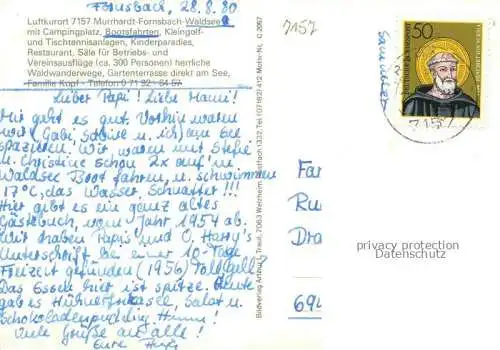 Fornsbach, 28.8.80
Luftkurort 7157 Murrhardt-Fornsbach-Waldsee
mit Campingplatz, Bootsfahrten, Kleingolf-
und Tischtennisanlagen, Kinderparadies,
Restaurant, Säle für Betriebs- und
Vereinsausflüge (ca. 300 Personen) herrliche
Waldwanderwege, Gartenterrasse direkt am See,
Familie Kopf - Telefon 0 71 92 -
Lieber Papi! Liebe Mami!
Mir geht es gut. Vorhin waren
wir, Gabi, Sabine u. ich am See
spazieren. Wir waren mit Stefie
u. Christine schon 2x auf'm
Waldsee Boot fahren, u. schwimmen
17°C, das Wasser, Schnatter!!!
Hier gibt es ein ganz altes
Gästebuch, vom Jahr 1954 ab.
Wir haben Papi's und O. Harry's
Unterschrift bei einer 10-Tage
Freizeit gefunden (1956) Toll, gell?
Das Essen hier ist spitze. Heute
gab es Hühnerfrikassee, Salat u.
Schokoladenpudding Hmm!
Viele Grüße an alle!
Eure
Bildverlag Arthur F. Traut, 7063 Welzheim, Postfach 1332, Tel. (07182) 412
7157
50
DEUTSCHE BUNDESPOST
7157
Fa
Ru
Dra
694
privacy protection
DatenSchutz